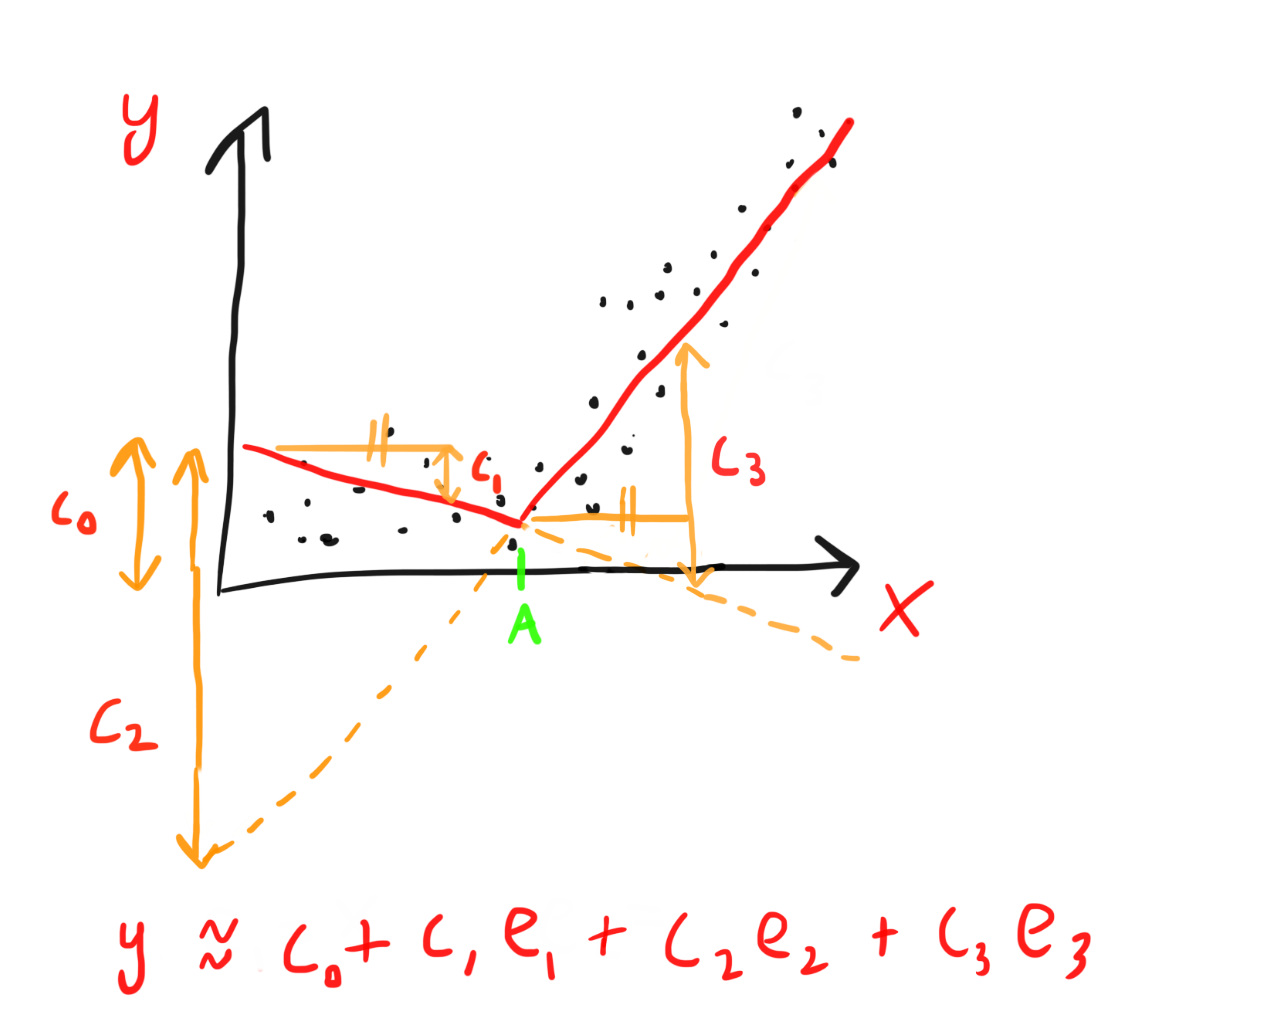 y
c₁
c₃
c₀
A
x
c₂
y ≈ c₀ + c₁ e₁ + c₂ e₂ + c₃ e₃